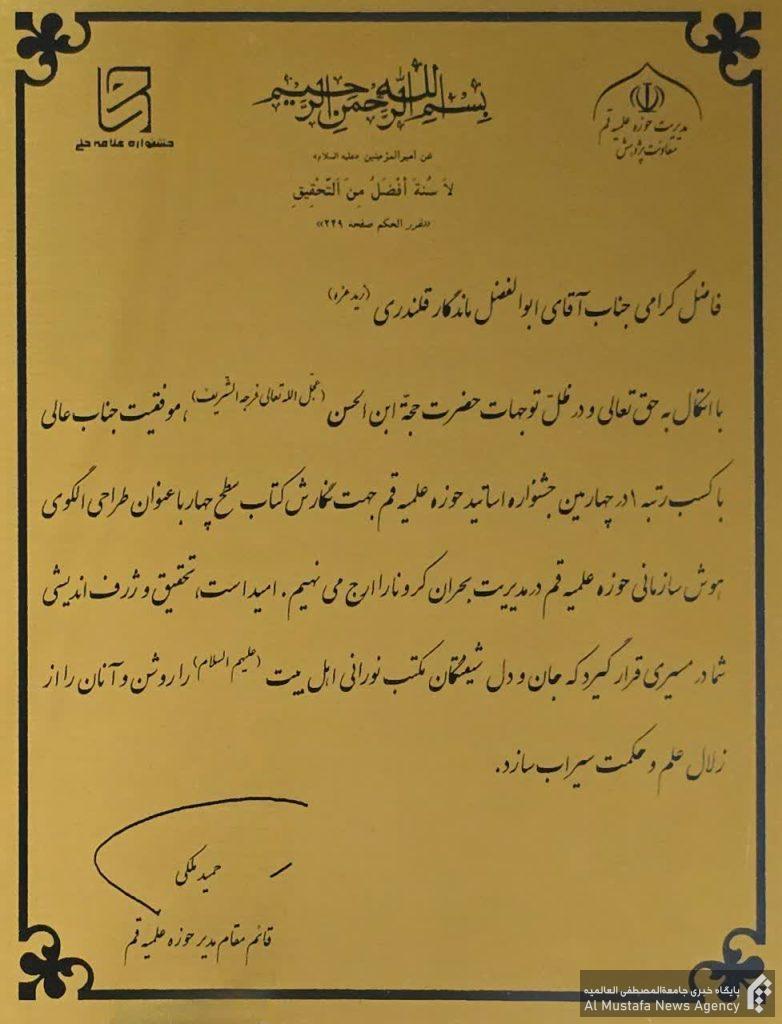 بسم الله الرحمن الرحیم
مدیریت حوزه علمیه قم
معاونت پژوهش
جشنواره علامه حلی
عن امیرالمؤمنین «علیه السلام»
لاَ سُنَةَ أَفْضَلُ مِنَ اَلتَّحْقِیقِ
«غرر الحکم صفحه ۲۴۹»
فاضل گرامی جناب آقای ابوالفضل ماندگار قلندری (زید عزه)
با اتکال به حق تعالی و در ظلّ توجهات حضرت حجة ابن الحسن (عجّل الله تعالی فرجه الشّریف)، موفقیت جناب عالی
با کسب رتبه ۱ در چهارمین جشنواره اساتید حوزه علمیه قم جهت نگارش کتاب سطح چهار با عنوان طراحی الگوی
هوش سازمانی حوزه علمیه قم در مدیریت بحران کرونا را ارج می نهیم. امید است، تحقیق و ژرف اندیشی
شما در مسیری قرار گیرد که جان و دل شیفتگان مکتب نورانی اهل بیت (علیهم السلام) را روشن و آنان را از
زلال علم و حکمت سیراب سازد.
حمید ملکی
قائم مقام مدیر حوزه علمیه قم
پایگاه خبری جامعةالمصطفی العالمیه
Al Mustafa News Agency